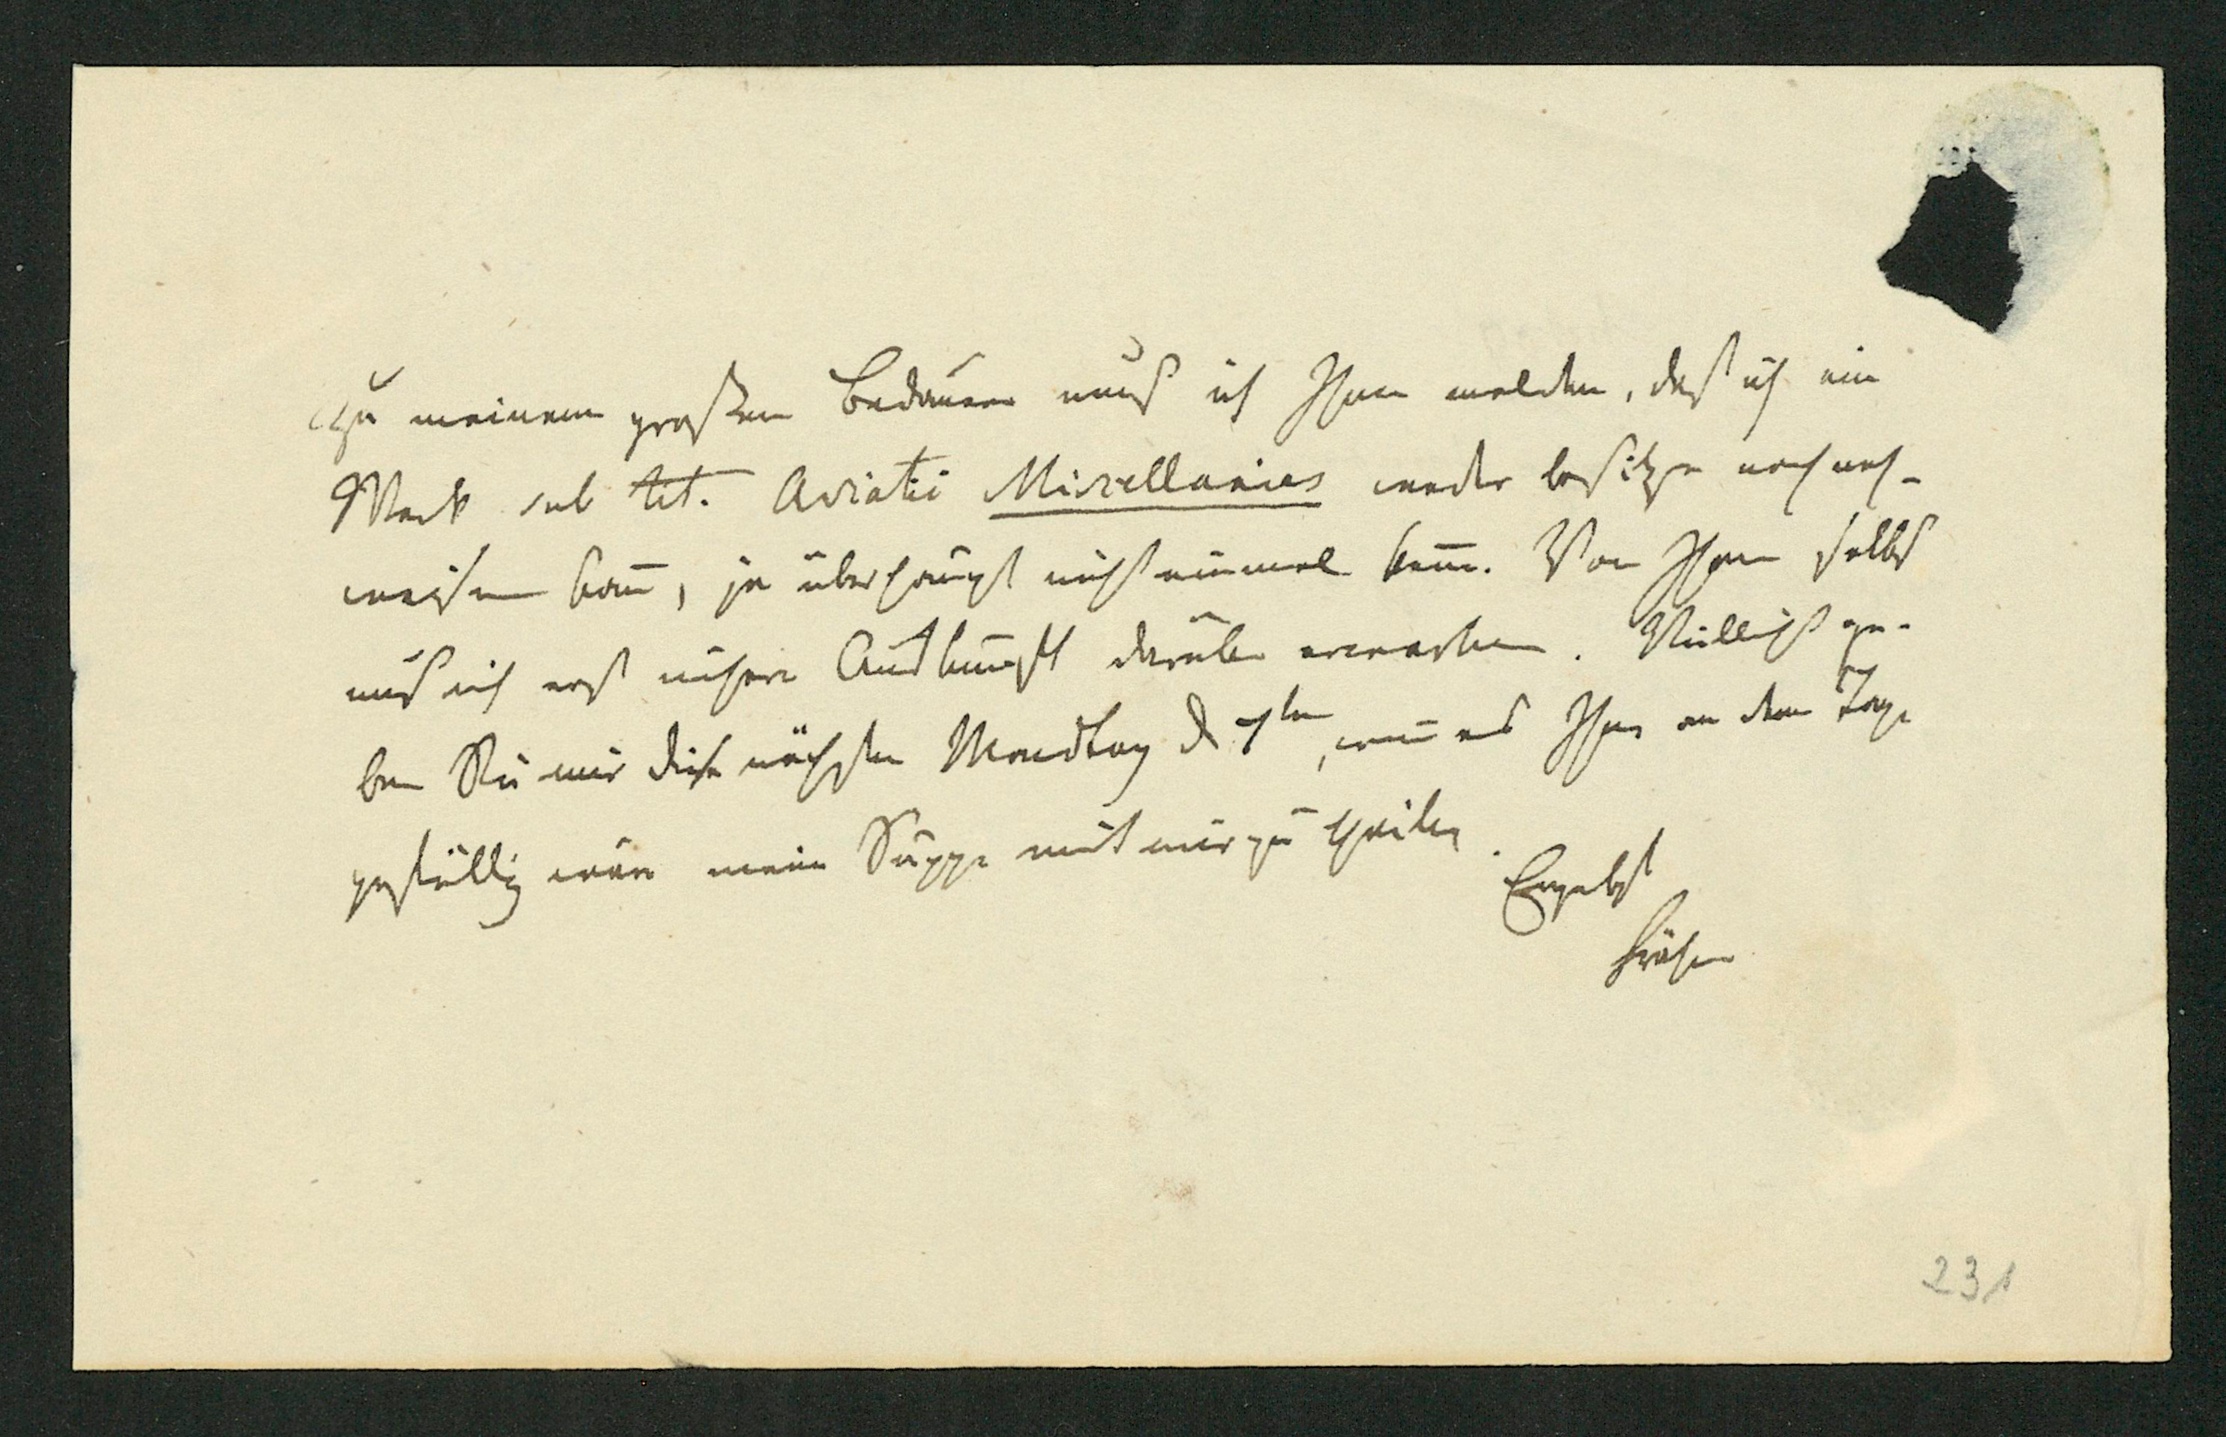 Zu meinem großen Bedauern muß ich Ihnen melden, daß ich ein
Werk sub tit. Asiatic Miscellanies weder besitze noch nach-
weisen kann̄, ja überhaupt nicht einmal kenne. Von Ihnen selbst
muß ich erst nähere Auskunft darüber erwarten. Vielleicht ge-
ben Sie mir diese nächsten Mondtag d 7ten, wenn̄ es Ihnen an dem Tage
gefällig wäre meine Suppe mit mir zu theilen.
Ergebst
Frähn
231